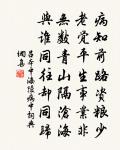 病知前路資糧少
老覺平生事業非
無數青山隔滄海
與誰同往却同歸